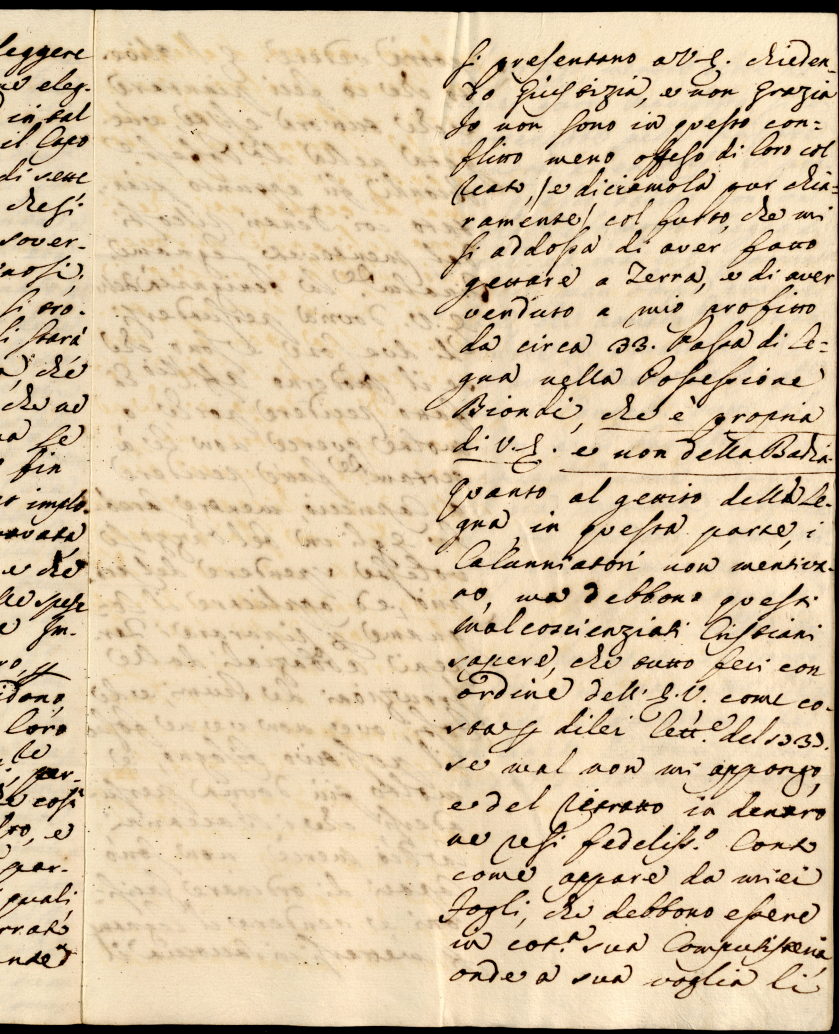 leggere
me eleg-
in tal
il Capo
di sette
che si
sover-
si tro-
li starà
che
che ne
na Se
fin
implo-
ovata
e che
lle spese
e Im-
idono,
Loro
le
per-
e così
tro, e
par-
quali
errate
si presentano a V.S. chieden-
do Giustizia, e non grazia
Io non sono in questo con=
flitto meno offeso di loro col
reato, /e diciamola pur chia=
ramente/ col furto, che mi
si addossa di aver fatto
gettare a Terra, e di aver
venduto a mio profitto
da circa 33. Passa di Le=
gna nella Possessione
Biondi, che è propria
di V.S. e non della Badia.
Quanto al getito della Le-
gna, in questa parte, i
Calunniatori non mentisco-
no, ma debbono questi
malcoscienziati Cristiani
sapere, che tutto feci con
ordine dell' S.V. come co-
sta p dilei Lett.e del 1733.
se mal non mi appongo,
e del ritratto in denaro
ne resi fedeliss.o Conto
come appare da miei
Fogli, che debbono essere
in cot.a sua Computisteria
onde a sua voglia li